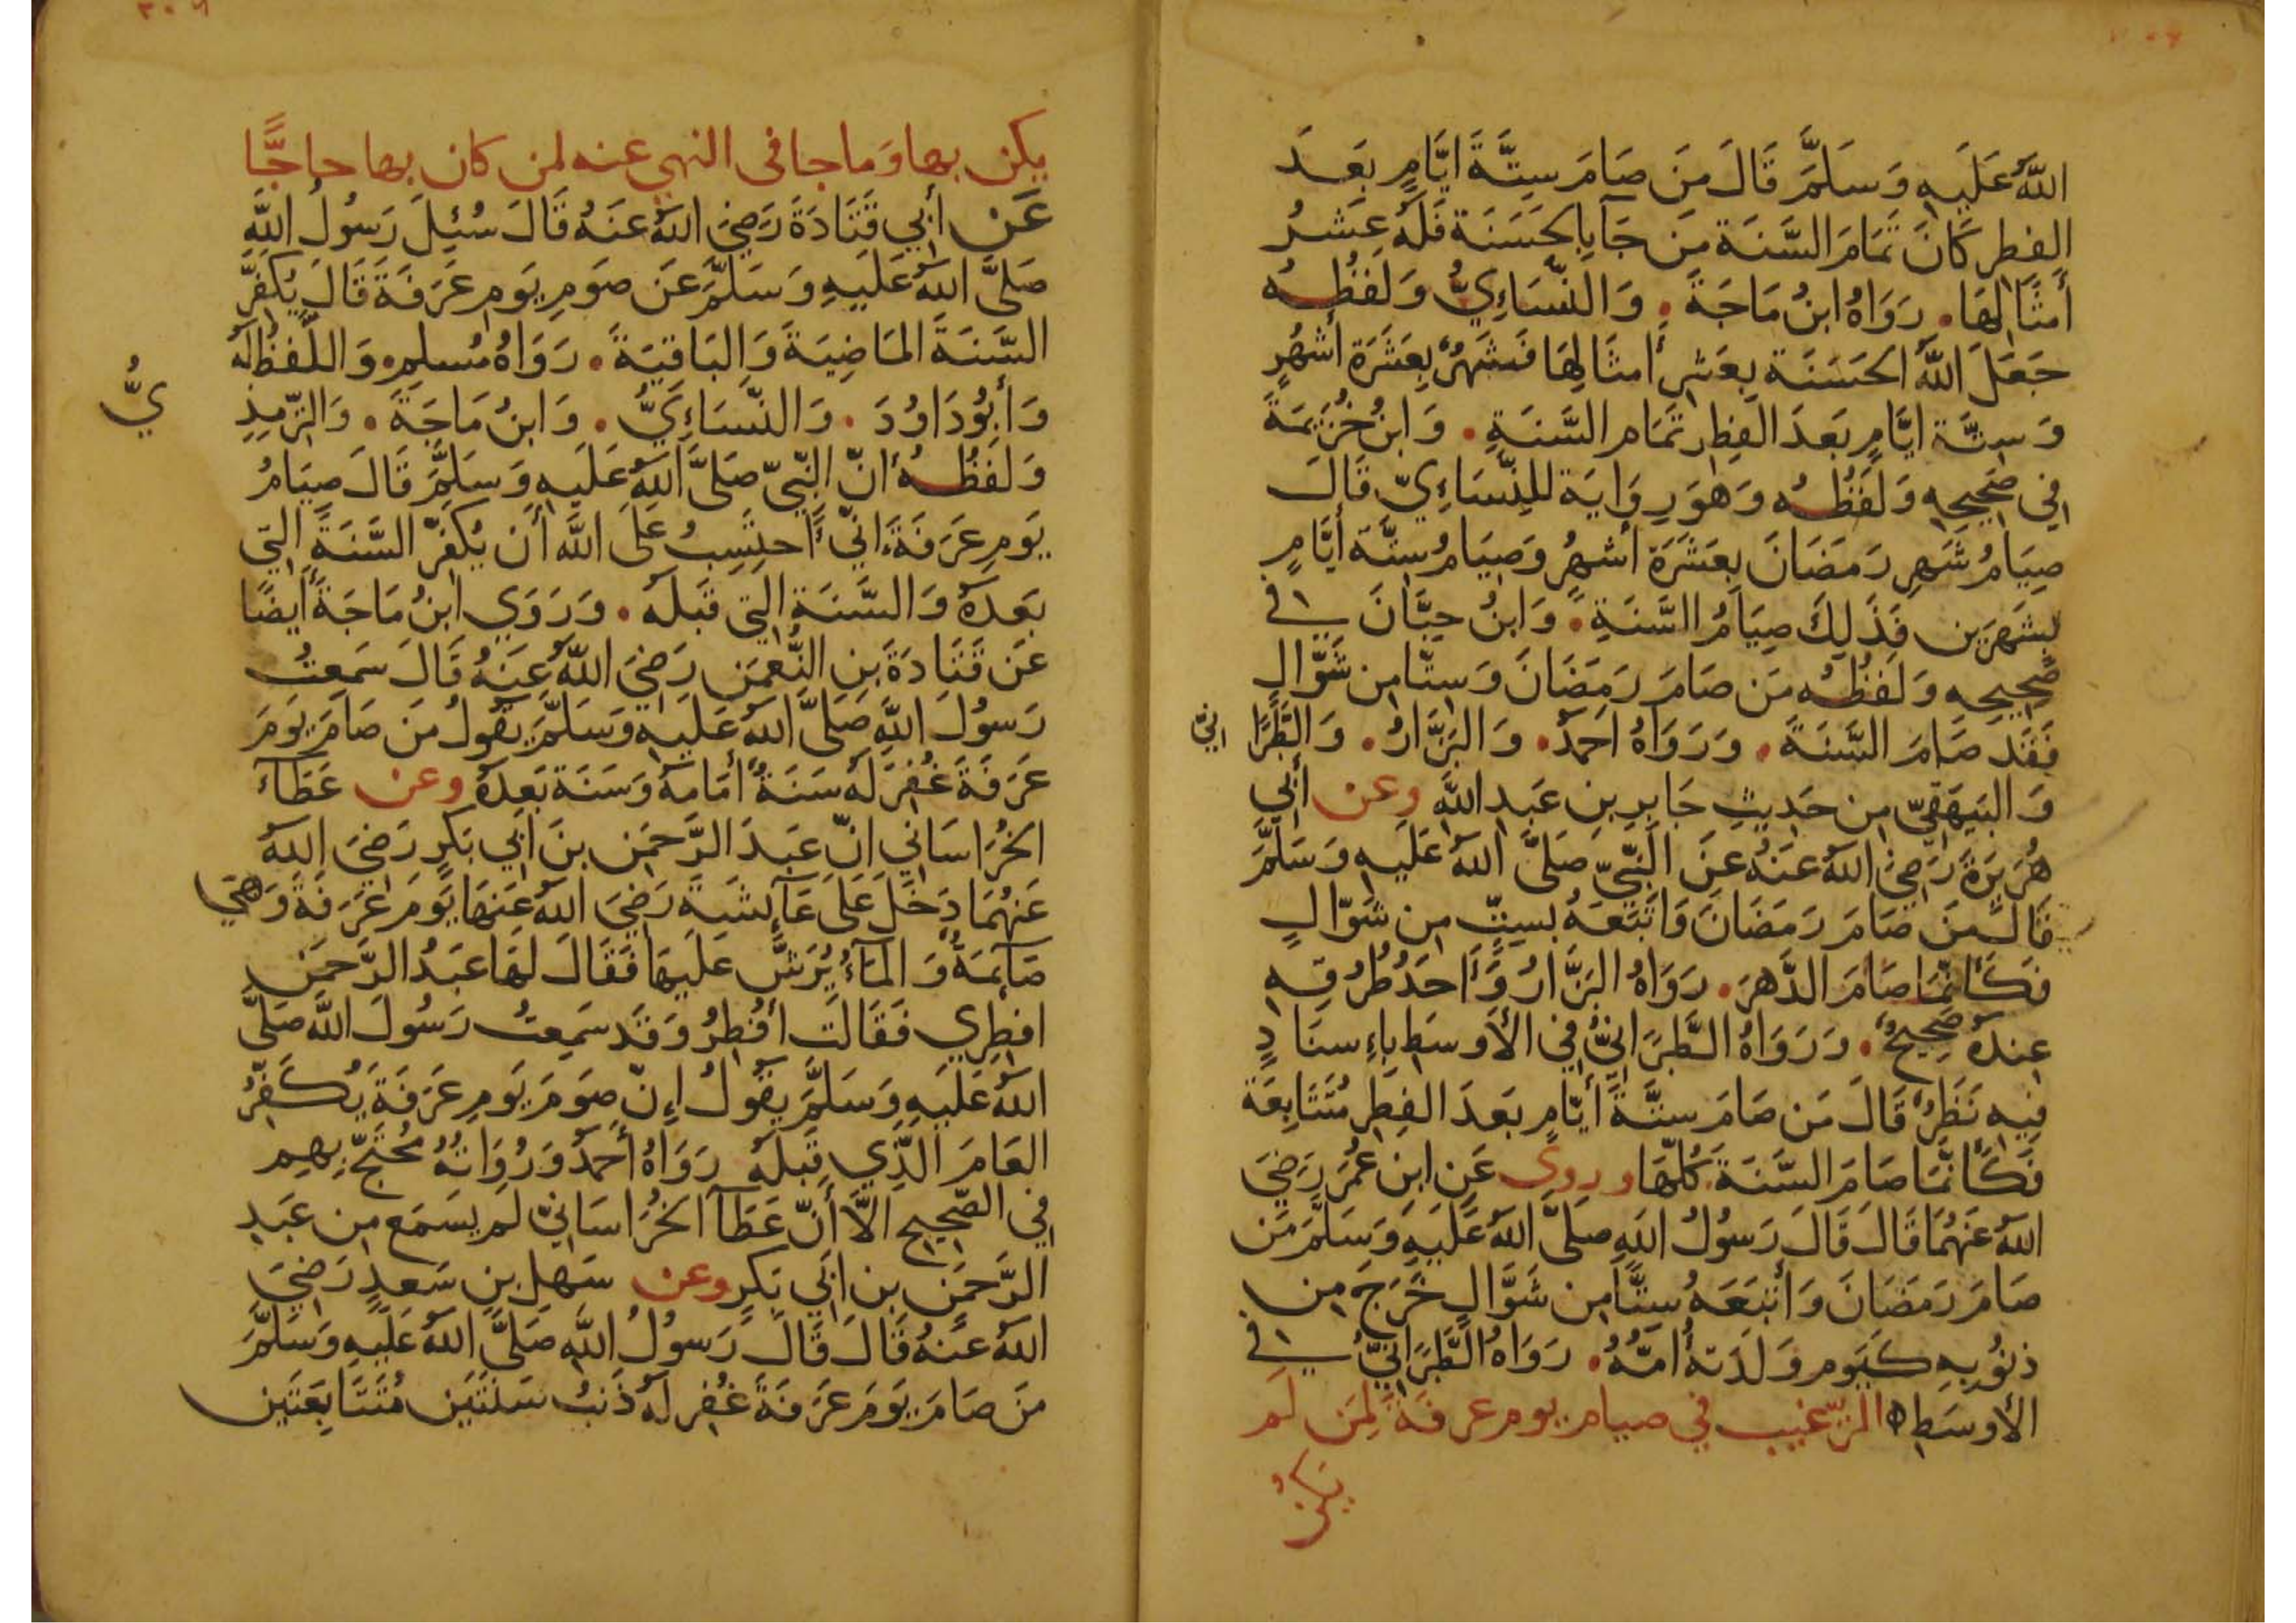 اللهُ عَلَيهِ وَسَلَّمَ قَالَ مَن صَامَ سِتَّةَ ايَّامٍ بَعدَ
الفِطرِ كَانَ تَمَامَ السَّنَة مَن جَآ بِالحَسَنَة فَلَهُ عَشرُ
أمثَالِهَا. رَوَاهُ ابنُ مَاجَةَ. وَالنَّسَاءِيُّ وَلَفظُه
جَعَلَ اللهُ الحَسَنَة بِعَشرِ أمثَالِهَا فَشَهرٌ بِعَشَرَة أشهُرٍ
وَسِتَّة ايَّامٍ بَعدَ الفِطرِ تمَام السَّنَةِ. وَابنُ خُزَيمَةَ
في صَحِيحِهِ وَلَفظُه وَهوَ رِوَايَة للنِّسَاءِيّ قَالَ
صِيَامُ شَهرِ رَمَضَانَ بعَشَرَة أشهُرٍ وَصِيَامُ سِتَّة أيَّامٍ
بِشَهرَين فَذَلِكَ صِيَامُ السَّنَةِ. وَابنُ حِبَّانَ في
صَحِيحِه وَلَفظُه مَن صَامَ رَمَضَانَ وَستّا مِن شَوَّالٍ
فَقَد صَامَ السَّنَةَ. وَرَوَاهُ احمَدُ. وَالبَزَّارُ. وَالطَّبَرَا
نيّ
وَالبَيهَقِيّ مِن حَدِيثِ جَابِرِ بنِ عَبدِ اللهِ وعن أبي
هُرَيرَةَ رَضِيَ اللهُ عَنهُ عَنِ النَّبيّ صَلَّى اللهُ عَلَيهِ وَسَلَّمَ
قَالَ مَن صَامَ رَمَضَانَ وَاتبَعَهُ بسِتٍّ مِن شَوّالٍ
فَكَأَنّمَا صَامَ الدَّهرَ. رَوَاهُ البَزَّارُ وَأحَدُ طُرُقِهِ
عِندَهُ صَحِيحٌ. وَرَوَاهُ الطَّبَرَانيُّ في الأَوسَطِ بِاِسنَادٍ
فِيهِ نَظَرٌ قَالَ مَن صَامَ ستَّةَ أيّامٍ بَعدَ الفِطرِ مُتَتَابِعَة
فَكَأَنّمَا صَامَ السَّنَةَ كُلّهَا وروى عَن ابنِ عُمَرَ رَضِيَ
اللهُ عَنهُمَا قَالَ قَالَ رَسُولُ اللهِ صَلَّى اللهُ عَلَيهِ وَسَلَّمَ مَن
صَامَ رَمَضَانَ وَأتبَعَهُ سِتًّا مِن شَوَّالٍ خَرَجَ مِن
ذنُوبِهِ كَيَومِ وَلَدَتهُ أمّهُ. رَوَاهُ الطَّبَرَانيُّ في
الأوسَطِ ه الترّغيب في صيام يوم عرفة لِمَن لَم
يكن
يكن بها وَما جا فى النهى عنه لمن كان بها حاجًّا
عَن أبي قَتَادَةَ رَضِيَ اللهُ عَنهُ قَالَ سُئِلَ رَسُولُ اللهِ
صَلَّى اللهُ عَلَيهِ وَسَلَّمَ عَن صَومِ يَومِ عَرَفَةَ قَالَ يُكَفِّرُ
السَّنَةَ المَاضِيَةَ وَالبَاقِيَةَ. رَوَاهُ مُسلِم. وَاللَّفظُ لَهُ
وَأبُودَاوُدَ. وَالنَّسَاءِيُّ. وَابنُ مَاجَةَ. وَالتِّرمِذِ
يُّ
وَلَفظُهُ انّ النّبيّ صَلَّى اللهُ عَلَيهِ وَسَلَّمَ قَالَ صِيَامُ
يَومِ عَرَفَةَ انّي أحتَسِبُ عَلَى اللهِ أن يُكَفِّرَ السَّنَةَ التي
بَعدَهُ وَالسَّنَة التي قَبلَه. وَرَوَي ابنُ مَاجَةَ أيضًا
عَن قَتَادَةَ بنِ النُّعمَن رَضِيَ اللهُ عَنهُ قَالَ سَمِعتُ
رَسُولَ اللهِ صَلَّى اللهُ عَلَيهِ وَسَلَّمَ يَقُولُ مَن صَامَ يَومَ
عَرَفَةَ غُفِرَ لَهُ سَنَةٌ أمَامهُ وَسَنَة بَعدهُ وعن عَطَآءَ
الخُرَاسَاني انّ عَبدَ الرَّحمَن بنَ ابَي بَكرٍ رَضِيَ اللهُ
عَنهُمَا دَخَلَ عَلَى عَآئِشَةَ رَضِيَ اللهُ عَنهَا يَومَ عَرَفَةَ وَهيَ
صَآئِمَةٌ وَالمَآءُ يُرَشُّ عَلَيهَا فَقَالَ لَهَا عَبدُ الرَّحمَن
افطِري فَقَالَت أُفطِرُ وَقَد سَمِعتُ رَسُولَ اللهِ صَلَّى
اللهُ عَلَيهِ وَسَلَّمَ يقُولُ اِنّ صَومَ يَومِ عَرَفَةَ يُكَفِّرُ
العَامَ الَّذِي قَبلَهُ رَوَاهُ أحمَدُ وَرُوَاتُهُ مُحتَجّ بِهِم
في الصَّحِيحِ الاَّ أَنّ عَطَآ الخُرَاسَانيّ لَم يَسمَع مِن عَبدِ
الرَّحمَن بن ابَي بَكرٍ وعن سَهلِ بنِ سَعدٍ رَضِيَ
اللهُ عَنهُ قَالَ قَالَ رَسُولُ اللهِ صَلَّى اللهُ عَلَيهِ وَسَلَّمَ
مَن صَامَ يَومَ عَرَفَةَ غُفِر لَهُ ذَنبُ سَنَتَين مُتَتَابِعَتَين